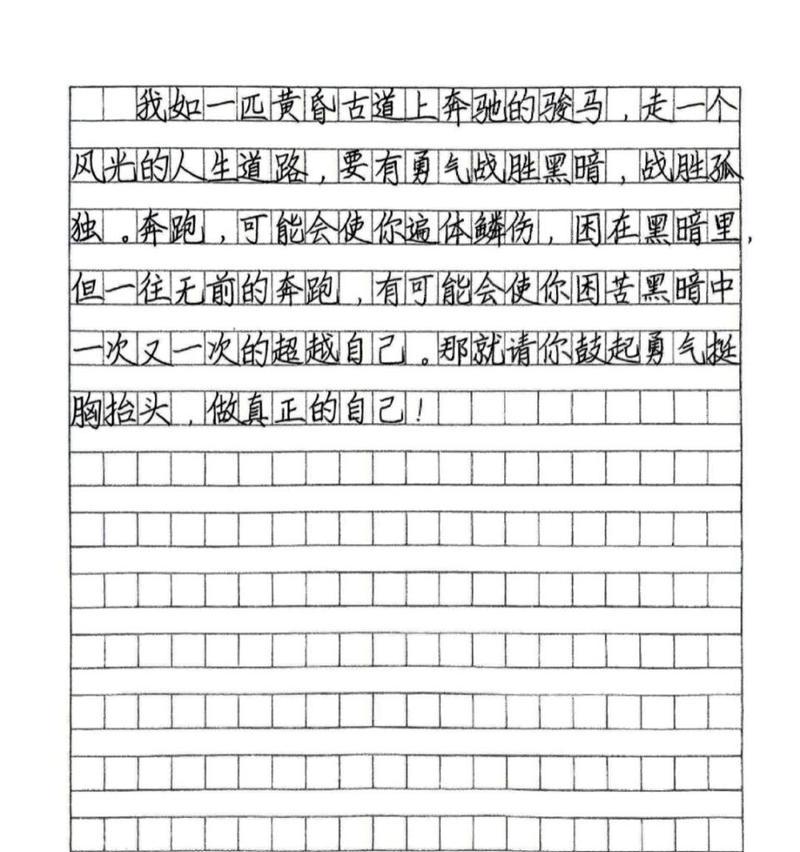 我如一匹黄昏古道上奔驰的骏马，走一个
风光的人生道路，要有勇气战胜黑暗，战胜孤
独。奔跑，可能会使你遍体鳞伤，困在黑暗里，
但一往无前的奔跑，有可能会使你困苦黑暗中
一次又一次的超越自己。那就请你鼓起勇气挺
胸抬头，做真正的自己！